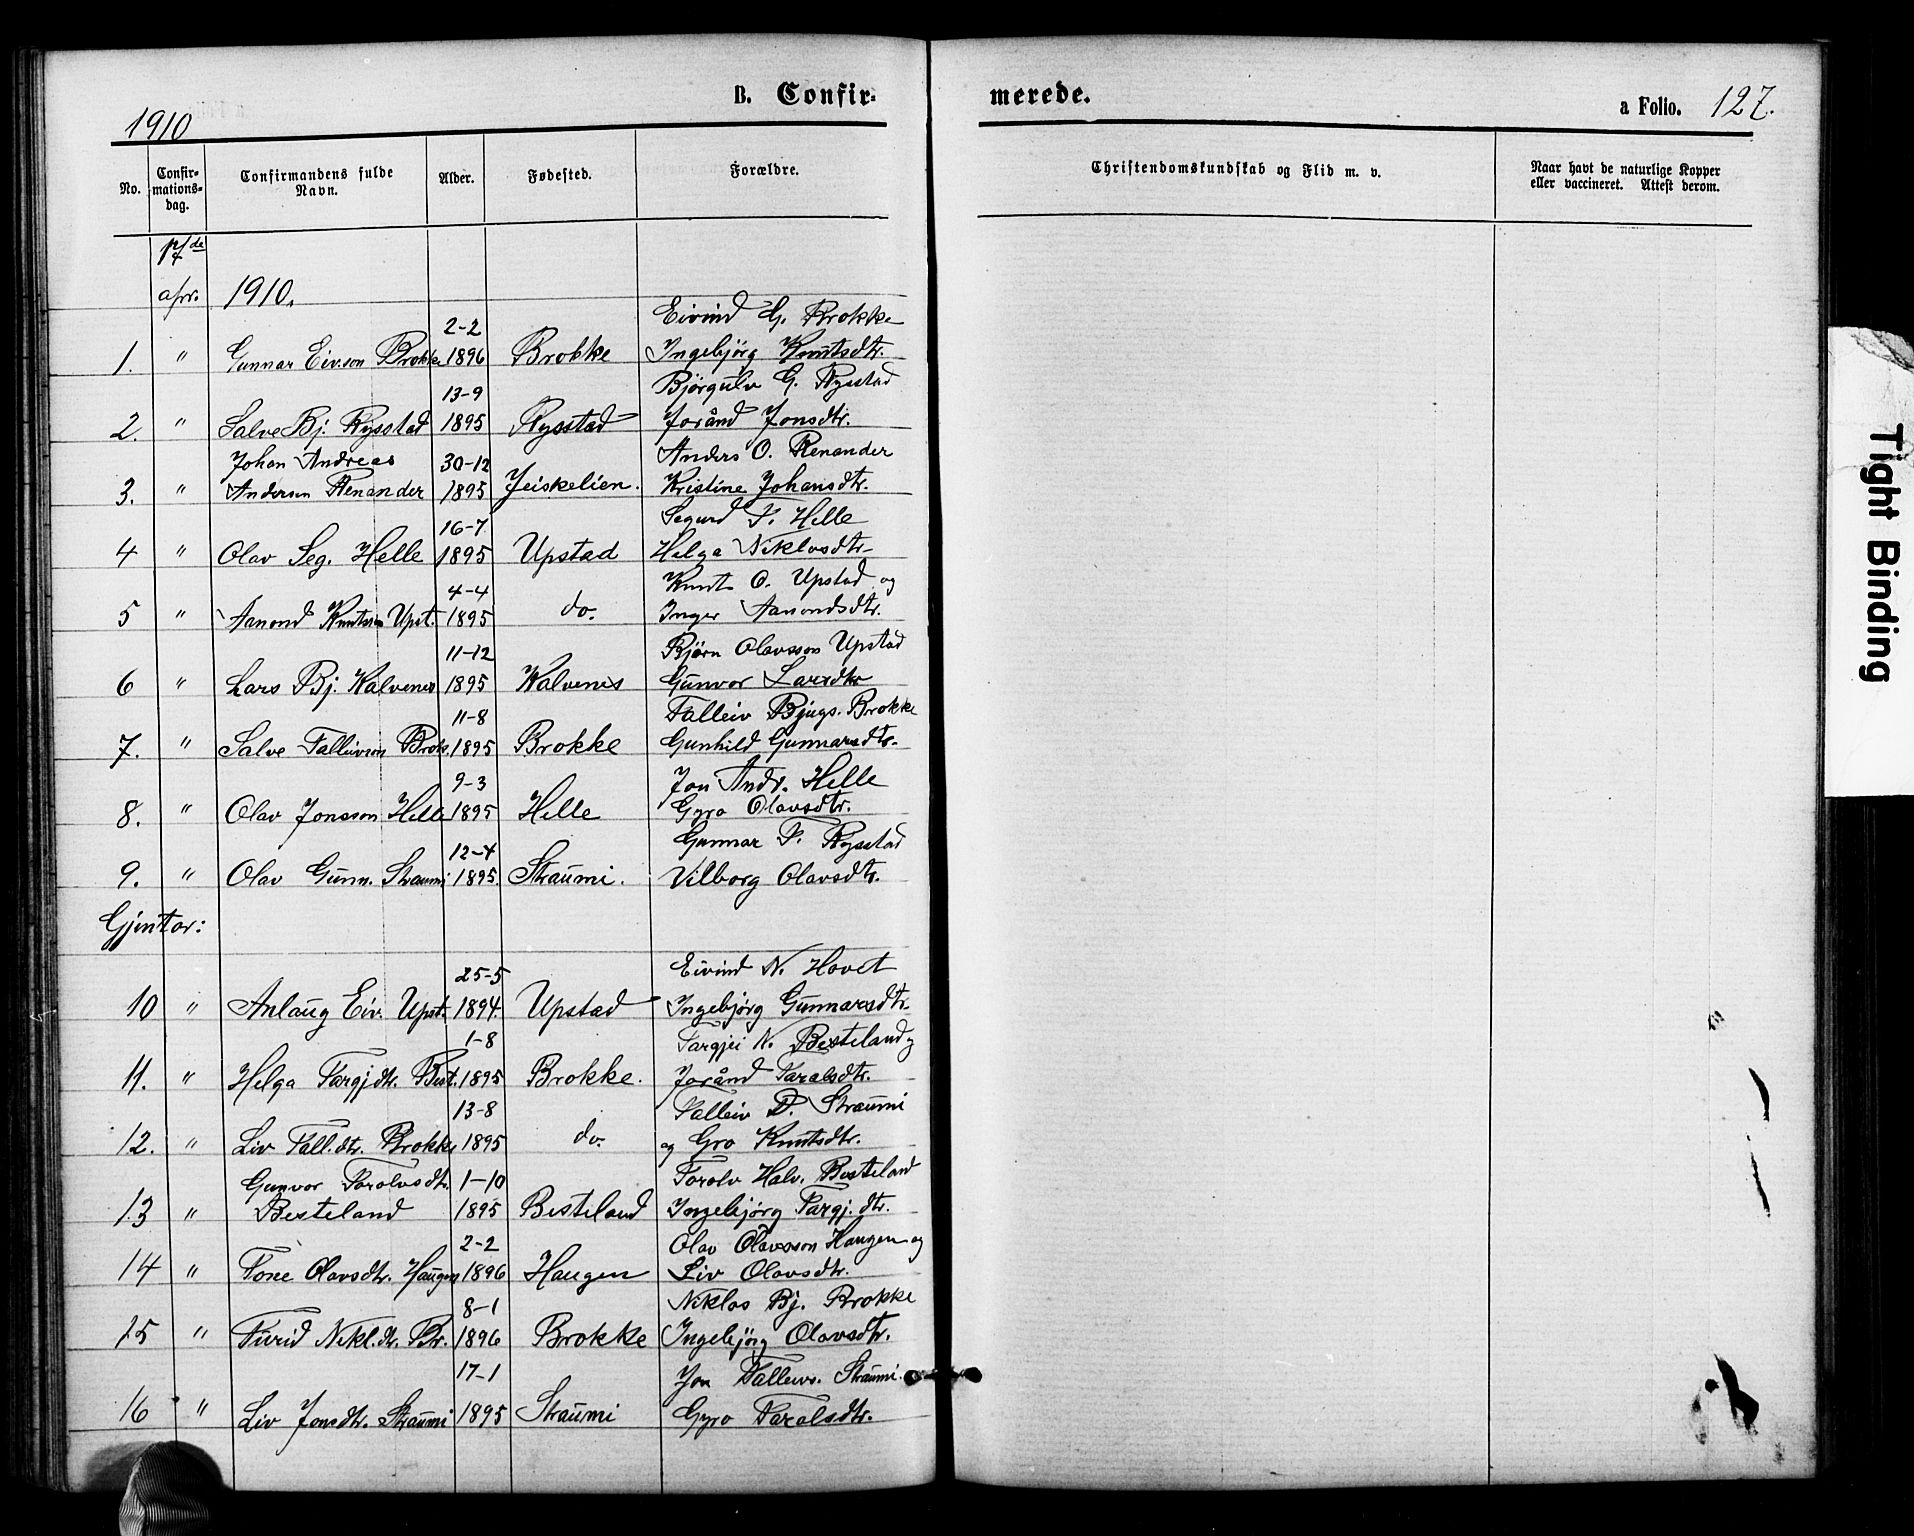 B. Confir-
1910
No. Confir-mations-dag. Confirmandens fulde Navn. Alder. Fødested. Forældre.
apr. 1910.
2-2 Eivind G. Brokke
1. " Gunnar Eiv.son Brokke 1896 Brokke Ingebjörg Knutsdtr.
13-9 Bjørgulv G. Rysstad
2. " Salve Bj. Rysstad 1895 Rysstad Joránd Jonsdtr.
Johan Andreas 30-12 Anders O. Renander
3. " Andersen Renander 1895 Jeiskelien. Kristine Johansdtr.
16-7 Segurd T. Helle
4 " Olav Seg. Helle 1895 Upstad Helga Niklosdtr.
4-4 Knut O. Upstad og
5 " Aanond Knutson Upst. 1895 do. Inger Aanondsdtr.
11-12 Bjørn Olavsson Upstad
6 " Lars Bj. Kalvenes 1895 Kalvenes Gunvor Larsdtr
11-8 Talleiv Bjugs. Brokke
7. " Salve Talleivson Brok. 1895 Brokke Gunhild Gunnarsdtr.
9-3 Jon Andr. Helle
8. " Olav Jonsson Helle 1895 Helle Gyro Olavsdtr.
12-4 Gunnar T. Rysstad
9. " Olav Gunn. Straumi 1895. Straumi. Vilborg Olavsdtr.
Gjentor:
25-5 Eivind N. Hovet
10 " Anlaug Eiv. Upst. 1894. Upstad Ingebjörg Gunnarsdtr.
1-8 Targjei N. Besteland og
11. " Helga Targjdtr. Best. 1895 Brokke. Joránd Taralsdtr.
13-8 Talleiv D. Straumi
12. " Liv Tall.dtr. Brokke 1895 do. og Gro Knutsdtr.
Gunvor Torolvsdtr. 1-10 Torolv Halv. Besteland
13 " Besteland 1895 Besteland Ingebjörg Targj.dtr.
2-2 Olav Olavsson Haugen og
14 " Tone Olavsdtr. Haugen 1896 Haugen Liv Olavsdtr.
8-1 Niklos Bj. Brokke
15 " Turid Nikl.dtr. Br. 1896 Brokke Ingebjörg Olavsdtr.
17-1 Jon Talleivs. Straumi.
16 " Liv Jonsdtr. Straumi 1895 Straumi Gyro Taralsdtr.
merede.
a Folio. 127.
Christendomskundskab og Flid m. v. Naar havt de naturlige Kopper
eller vaccineret. Attest derom.
Tight Binding